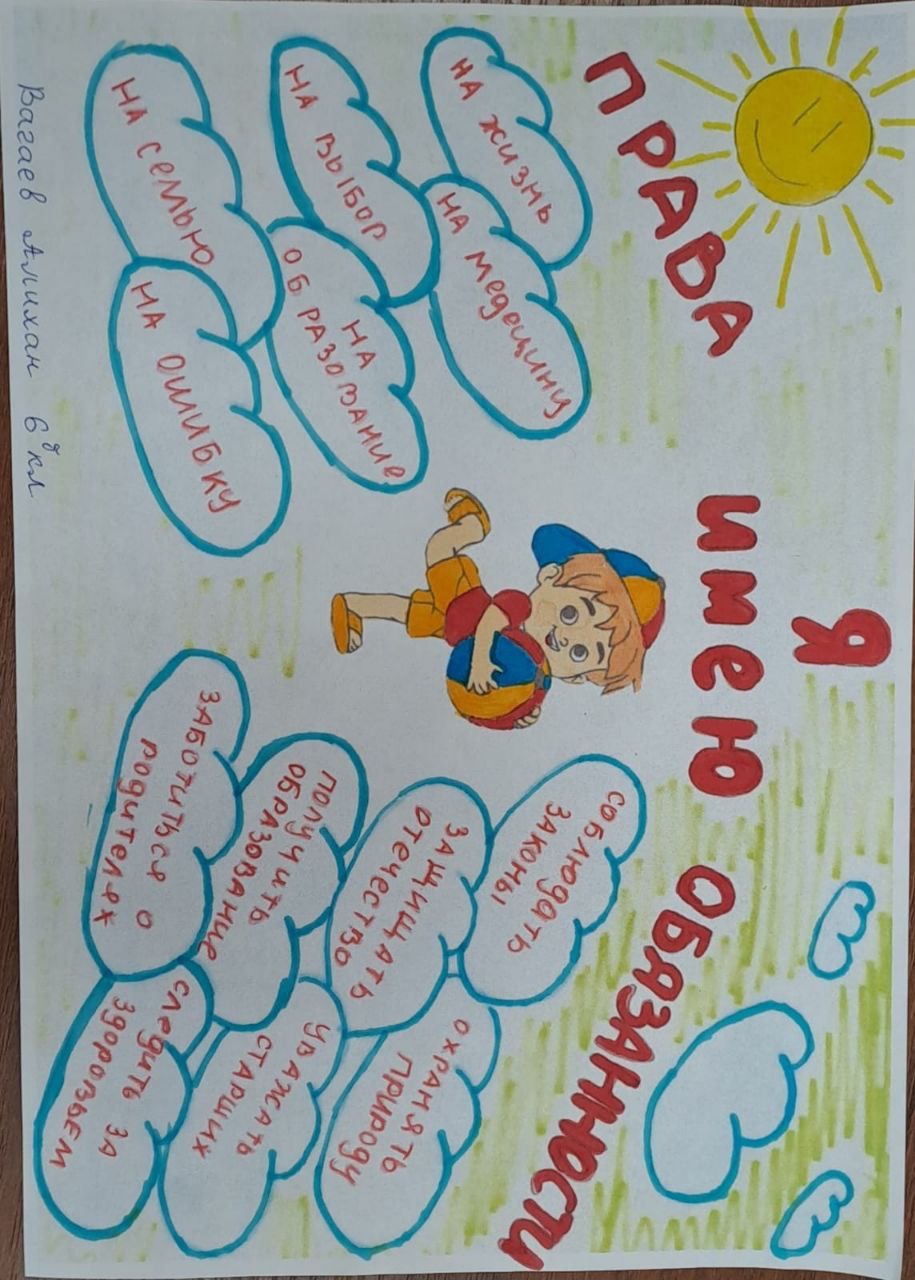 Я
ИМЕЮ
ПРАВА
НА ЖИЗНЬ
НА МЕДЕЦИНУ
НА ВЫБОР
НА
ОБРАЗОВАНИЕ
НА СЕМЬЮ
НА ОШИБКУ
ОБЯЗАННОСТИ
СОБЛЮДАТЬ
ЗАКОНЫ
ОХРАНЯТЬ
ПРИРОДУ
ЗАЩИЩАТЬ
ОТЕЧЕСТВО
УВАЖАТЬ
СТАРШИХ
ПОЛУЧИТЬ
ОБРАЗОВАНИЕ
СЛЕДИТЬ ЗА
ЗДОРОВЬЕМ
ЗАБОТИТЬСЯ О
РОДИТЕЛЯХ
Вагаев Алихан 6д кл